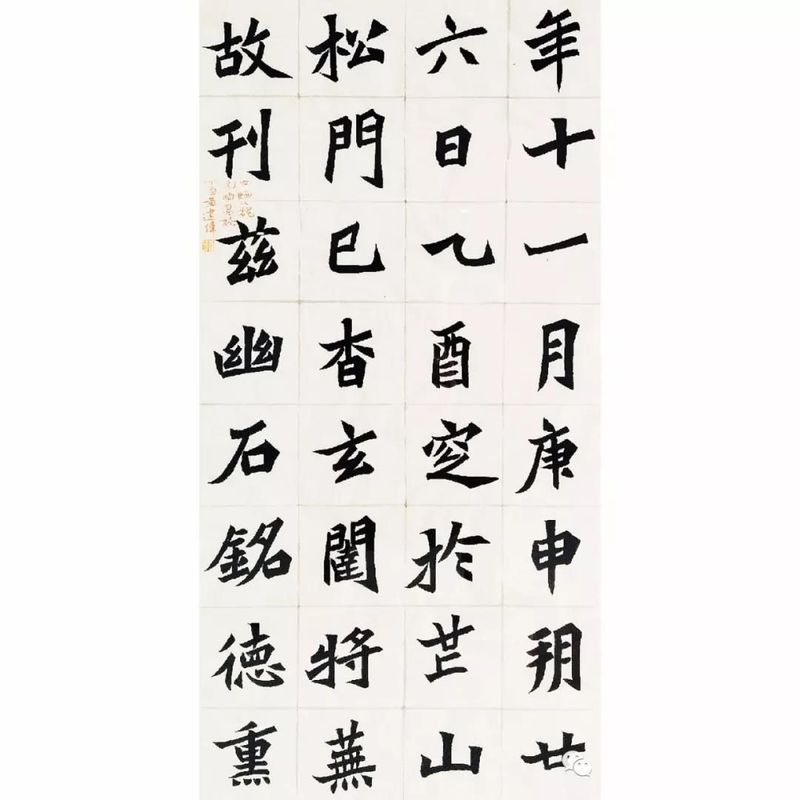 年十一月庚申朔廿
六日乙酉窆於芒山
松門已杳玄闥將蕪
故刊茲幽石銘德熏